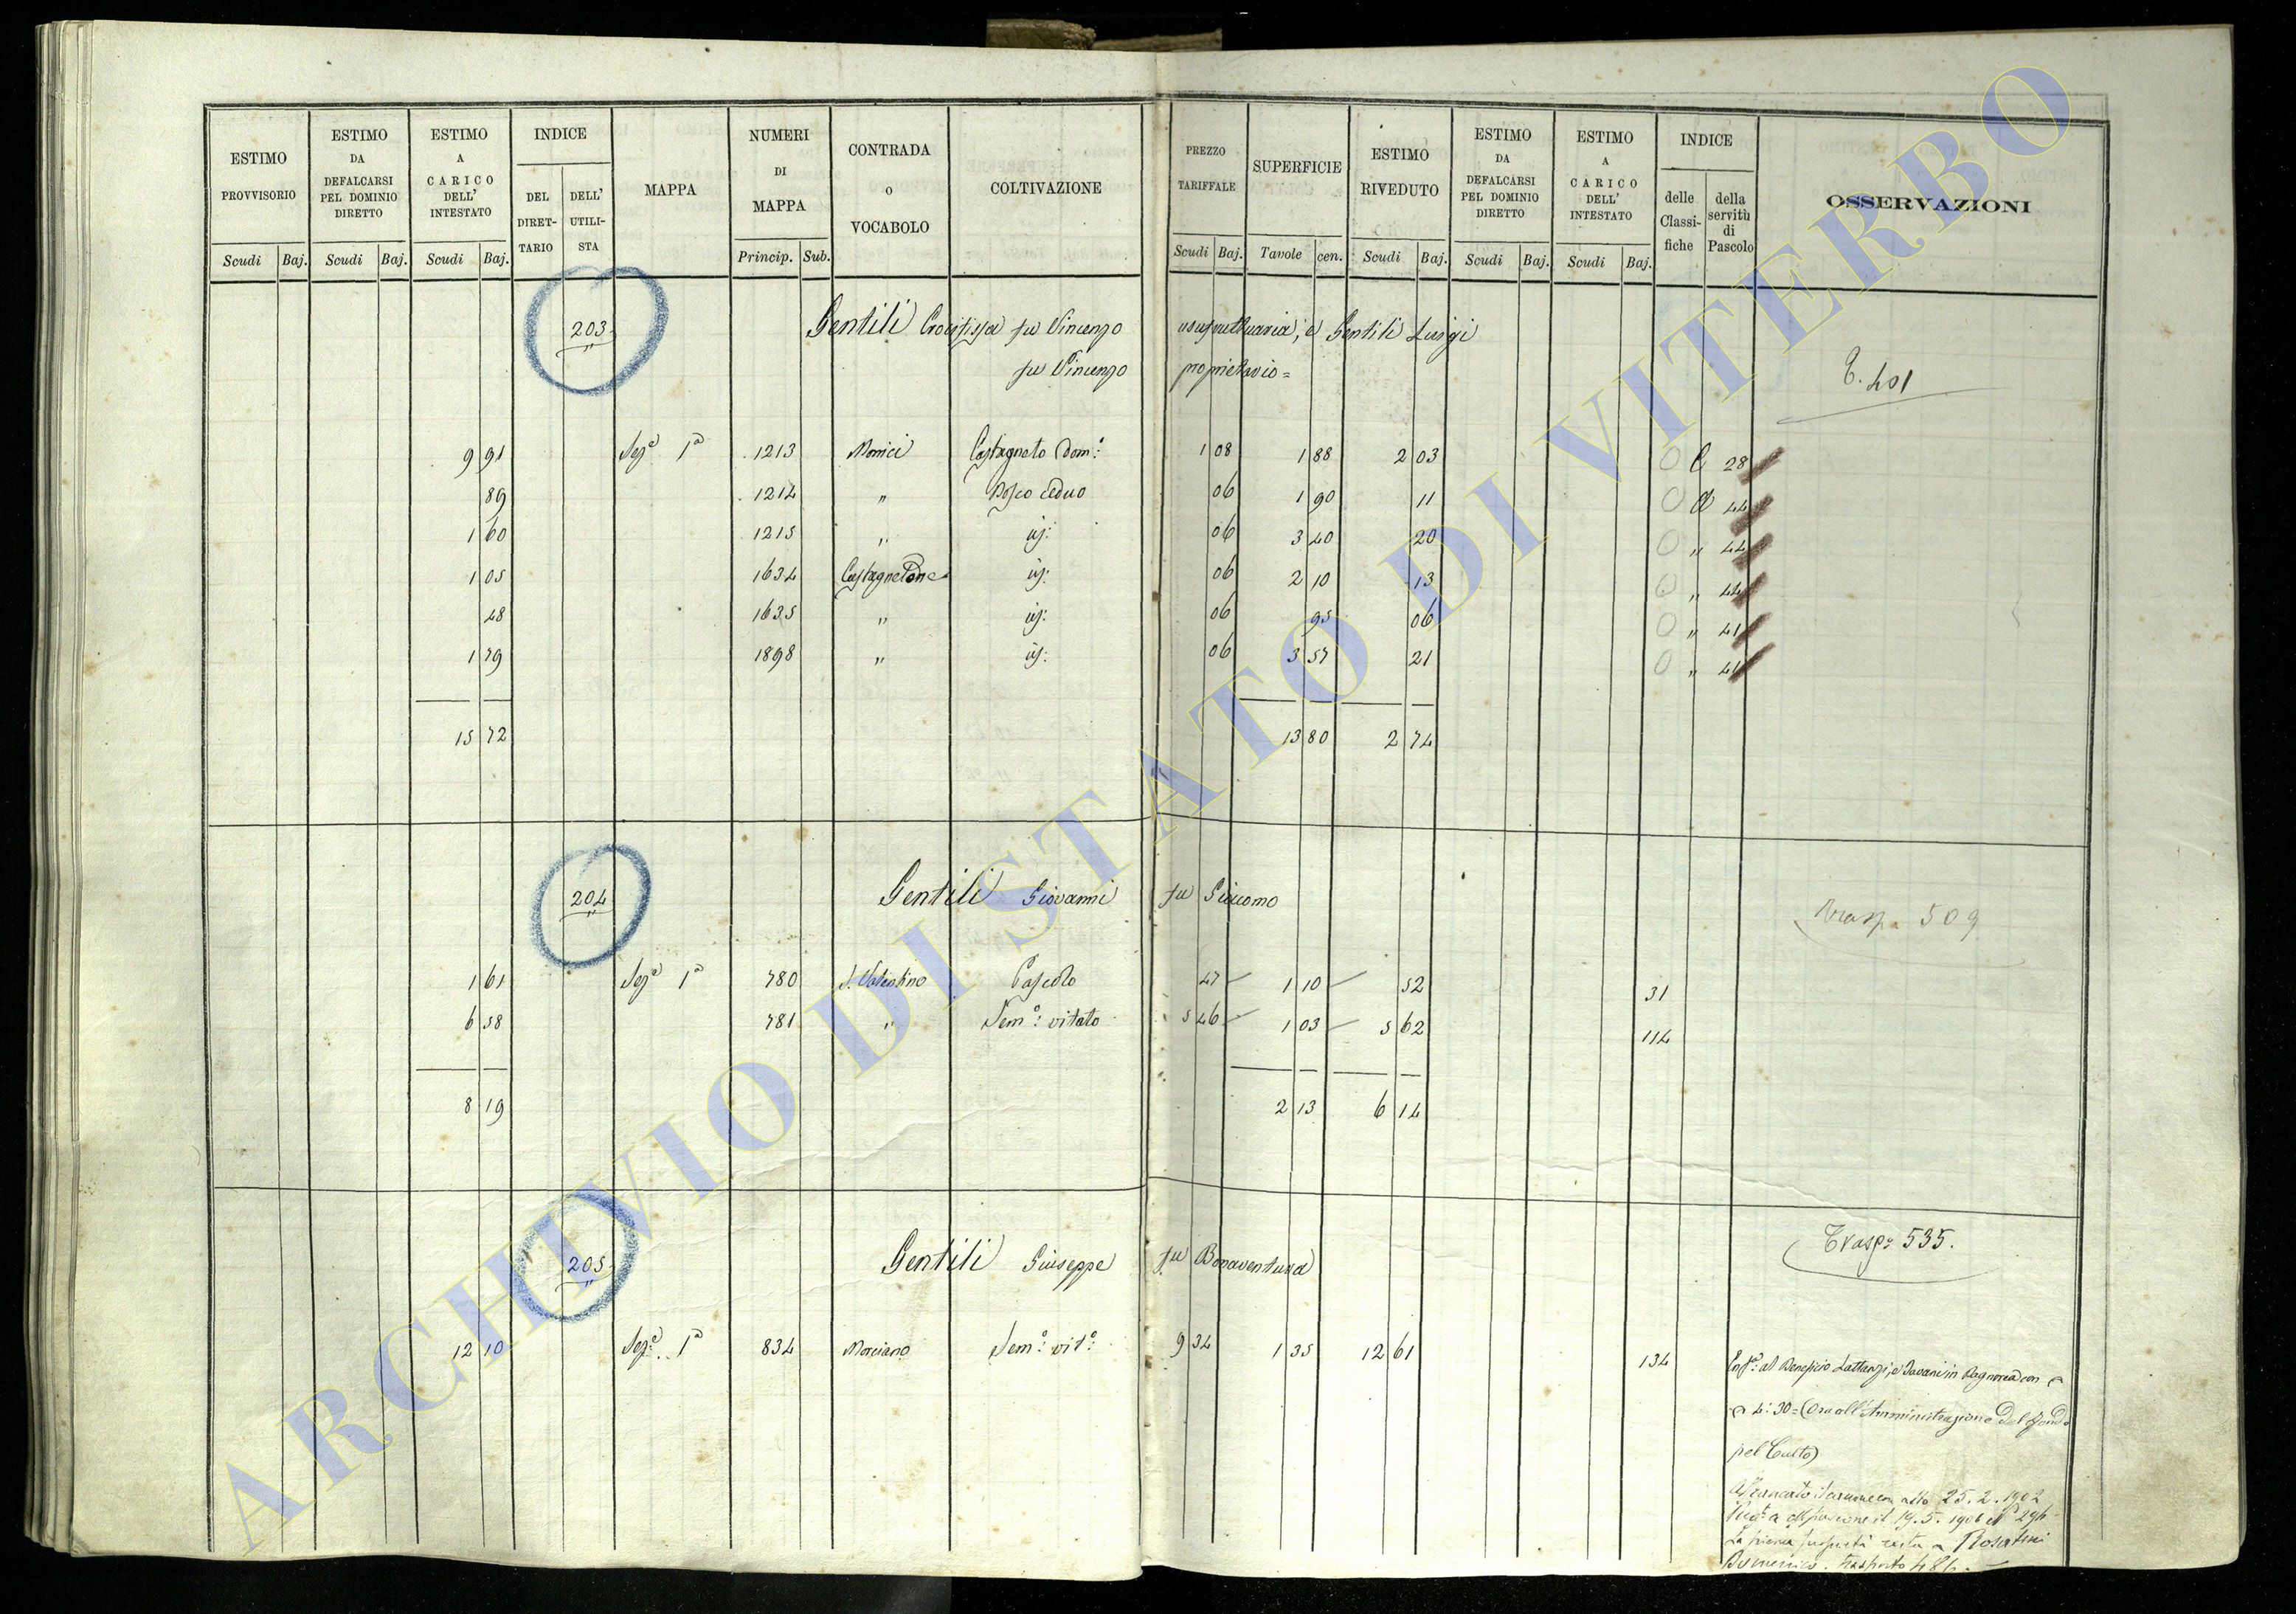 ESTIMO PROVVISORIO Scudi Baj.
ESTIMO DA DEFALCARSI PEL DOMINIO DIRETTO Scudi Baj.
ESTIMO A CARICO DELL' INTESTATO Scudi Baj.
INDICE DEL DIRET-TARIO DELL' UTILI-STA
MAPPA
NUMERI DI MAPPA Princip. Sub.
CONTRADA O VOCABOLO
COLTIVAZIONE
PREZZO TARIFFALE Scudi Baj.
SUPERFICIE Tavole cen.
ESTIMO RIVEDUTO Scudi Baj.
ESTIMO DA DEFALCARSI PEL DOMINIO DIRETTO Scudi Baj.
ESTIMO A CARICO DELL' INTESTATO Scudi Baj.
INDICE delle Classi-fiche della servitù di Pascolo
OSSERVAZIONI
203 Gentili Crocifissa fu Vincenzo usufruttuaria, e Gentili Luigi
fu Vincenzo proprietario =
T. 401
9 91 Sez.e 1a 1213 Monici Castagneto Dom.o 1 08 1 88 2 03 C 28
89 1214 " Bosco ceduo 06 1 90 11 D 44
1 60 1215 " id: 06 3 40 20 " 44
1 05 1634 Castagnetone id: 06 2 10 13 " 44
48 1635 " id: 06 95 06 " 41
1 79 1898 " id: 06 3 57 21 " 41
15 72 13 80 2 74
204 Gentili Giovanni fu Giacomo
Trasp. 509
1 61 Sez.e 1a 780 S. Valentino Pascolo 47 1 10 52 31
6 58 781 " Sem.o vitato 5 46 1 03 5 62 114
8 19 2 13 6 14
Trasp: 535.
205 Gentili Giuseppe fu Bonaventura
12 10 Sez.e 1a 834 Morciano Sem.o vit.o 9 34 1 35 12 61 134
Enf.a al Beneficio Lattanzi, e in Bagnorea con
4:30 = (Ora all'Amministrazione del Fondo
pel Culto)
Affrancato il canone con atto 25.2.1902
19.5.1906 296
La resta a
Domenico. trasporto 486.
ARCHIVIO DI STATO DI VITERBO